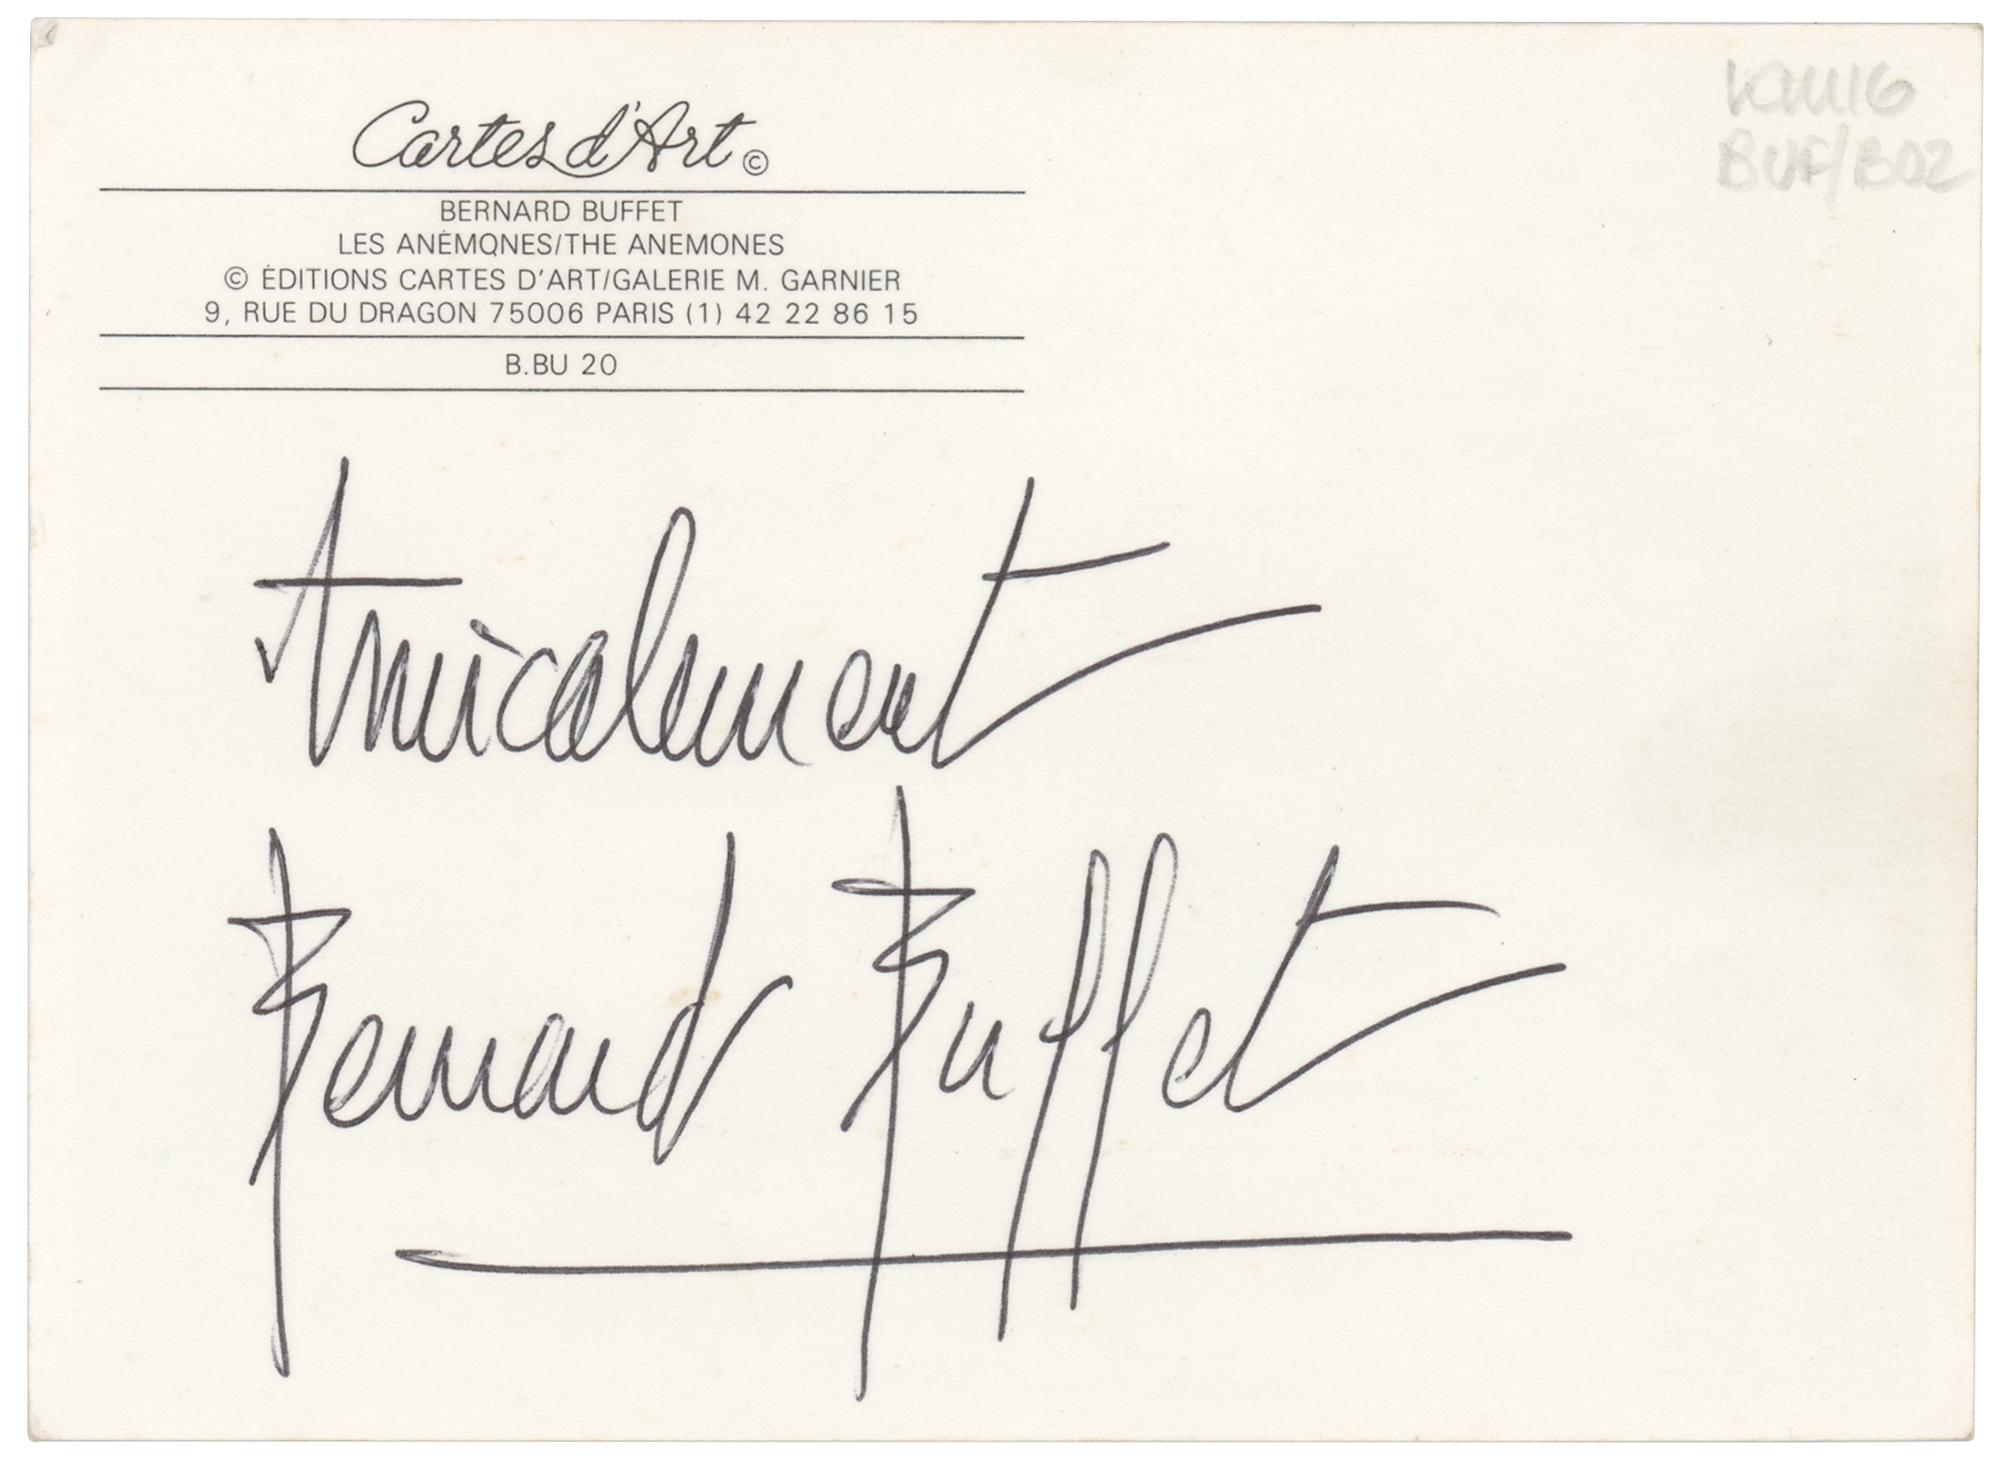 Cartes d'Art ©
BERNARD BUFFET
LES ANÉMONES/THE ANEMONES
© ÉDITIONS CARTES D'ART/GALERIE M. GARNIER
9, RUE DU DRAGON 75006 PARIS (1) 42 22 86 15
B.BU 20
BUF/B02
Amicalement
Bernard Buffet